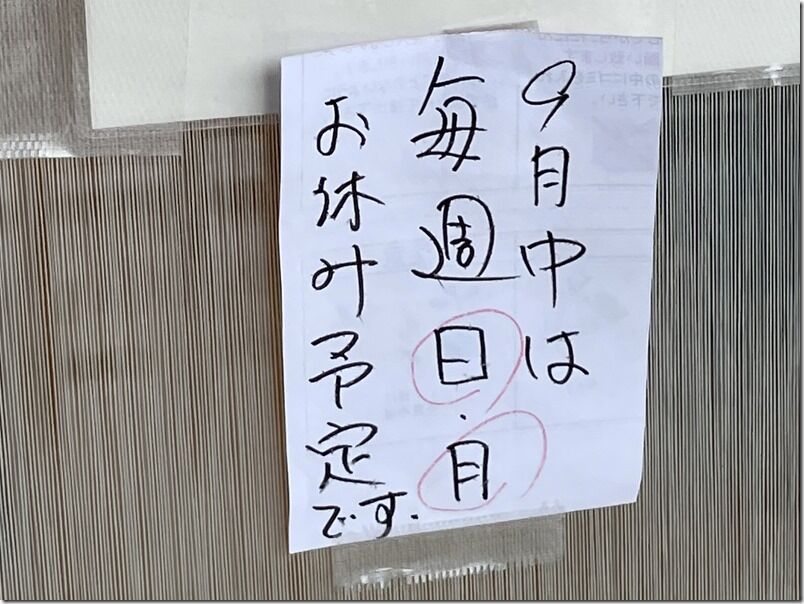 9月中は
毎週日・月
お休み予定です.